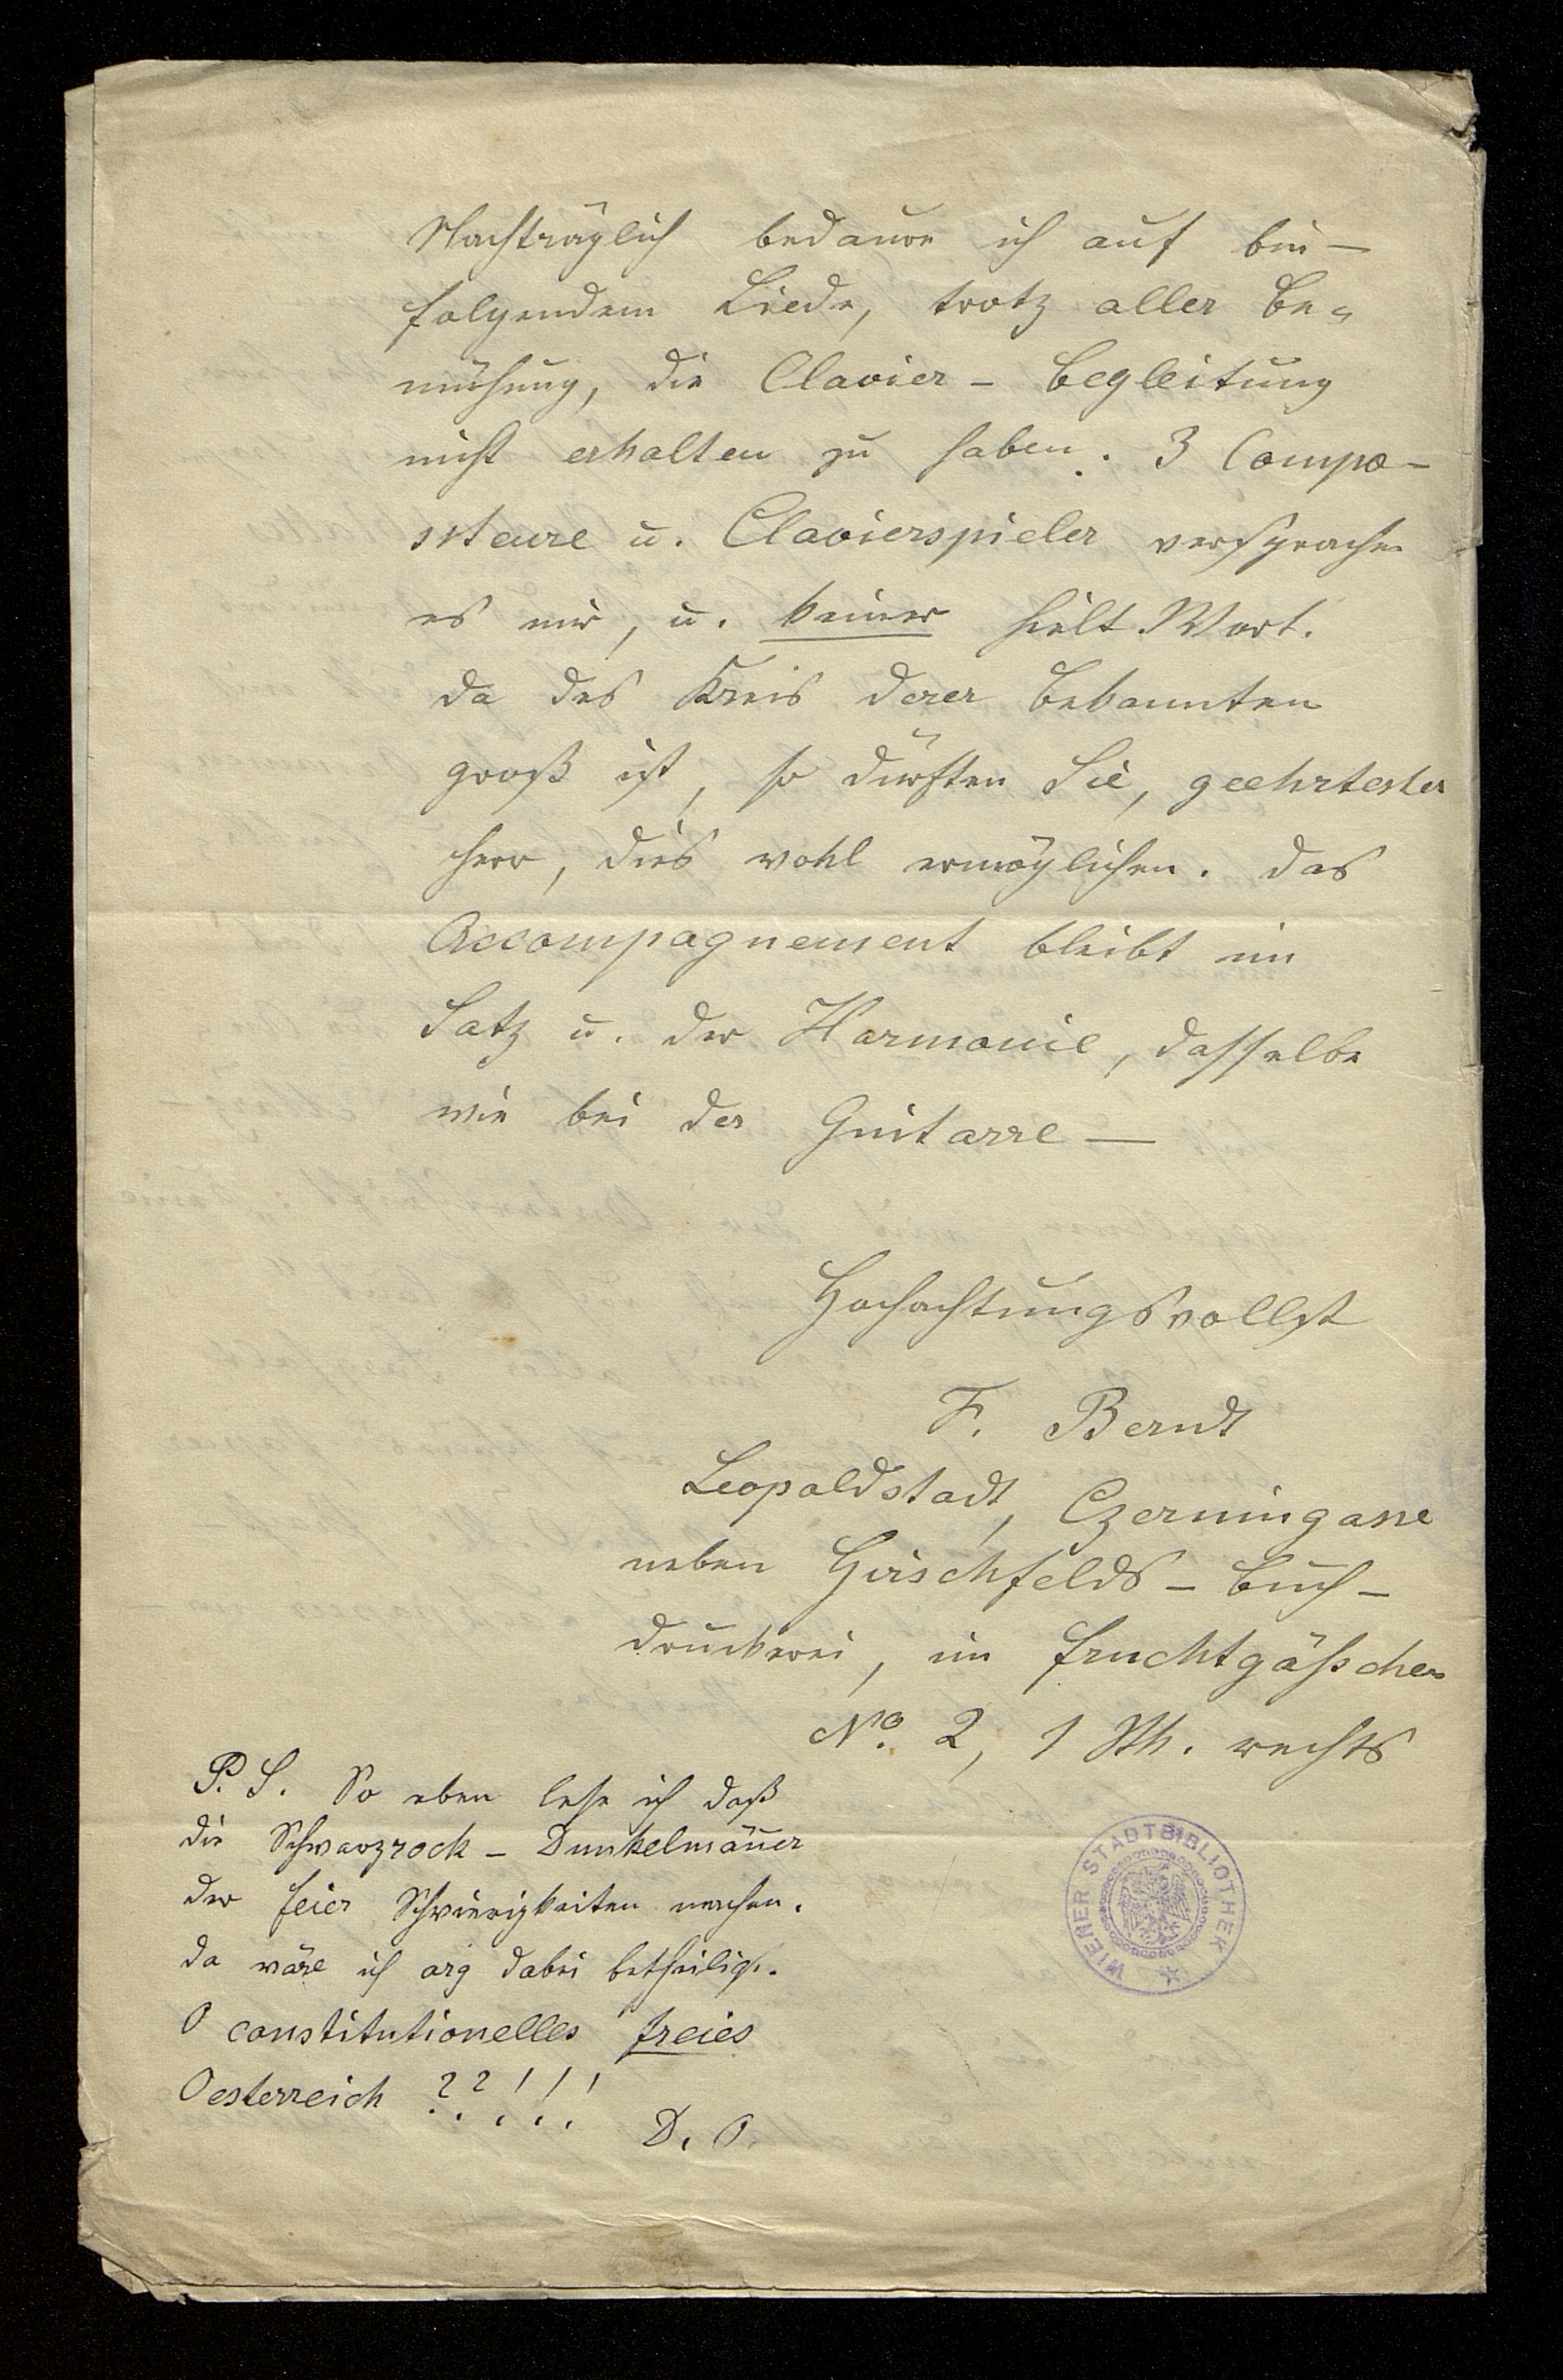 Nachträglich bedaure ich auf bei-
folgendem Liede, trotz aller Be-
mühung, die Clavier-Begleitung
nicht erhalten zu haben. 3 Compo-
siteure u. Clavierspieler versprachen
es mir, u. keiner hielt Wort.
Da des Kreis derer Bekannten
groß ist, so dürften Sie, geehrtester
Herr, dies wohl ermöglichen. Das
Accompagnement bleibt im
Satz u. der Harmonie, dasselbe
wie bei der Guitarre —
Hochachtungsvollst
F. Berndt
Leopoldstadt, Czerningasse
neben Hirschfelds-Buch-
druckerei, im Fruchtgäßchen
No. 2, 1 Stk. rechts
P. S. So eben lese ich daß
die Schwarzrock-Dunkelmänner
der Feier Schwierigkeiten machen.
Da wäre ich arg dabei betheiligt.
O constitutionelles freies
Oesterreich ??!!!
D. O.
WIENER STADTBIBLIOTHEK